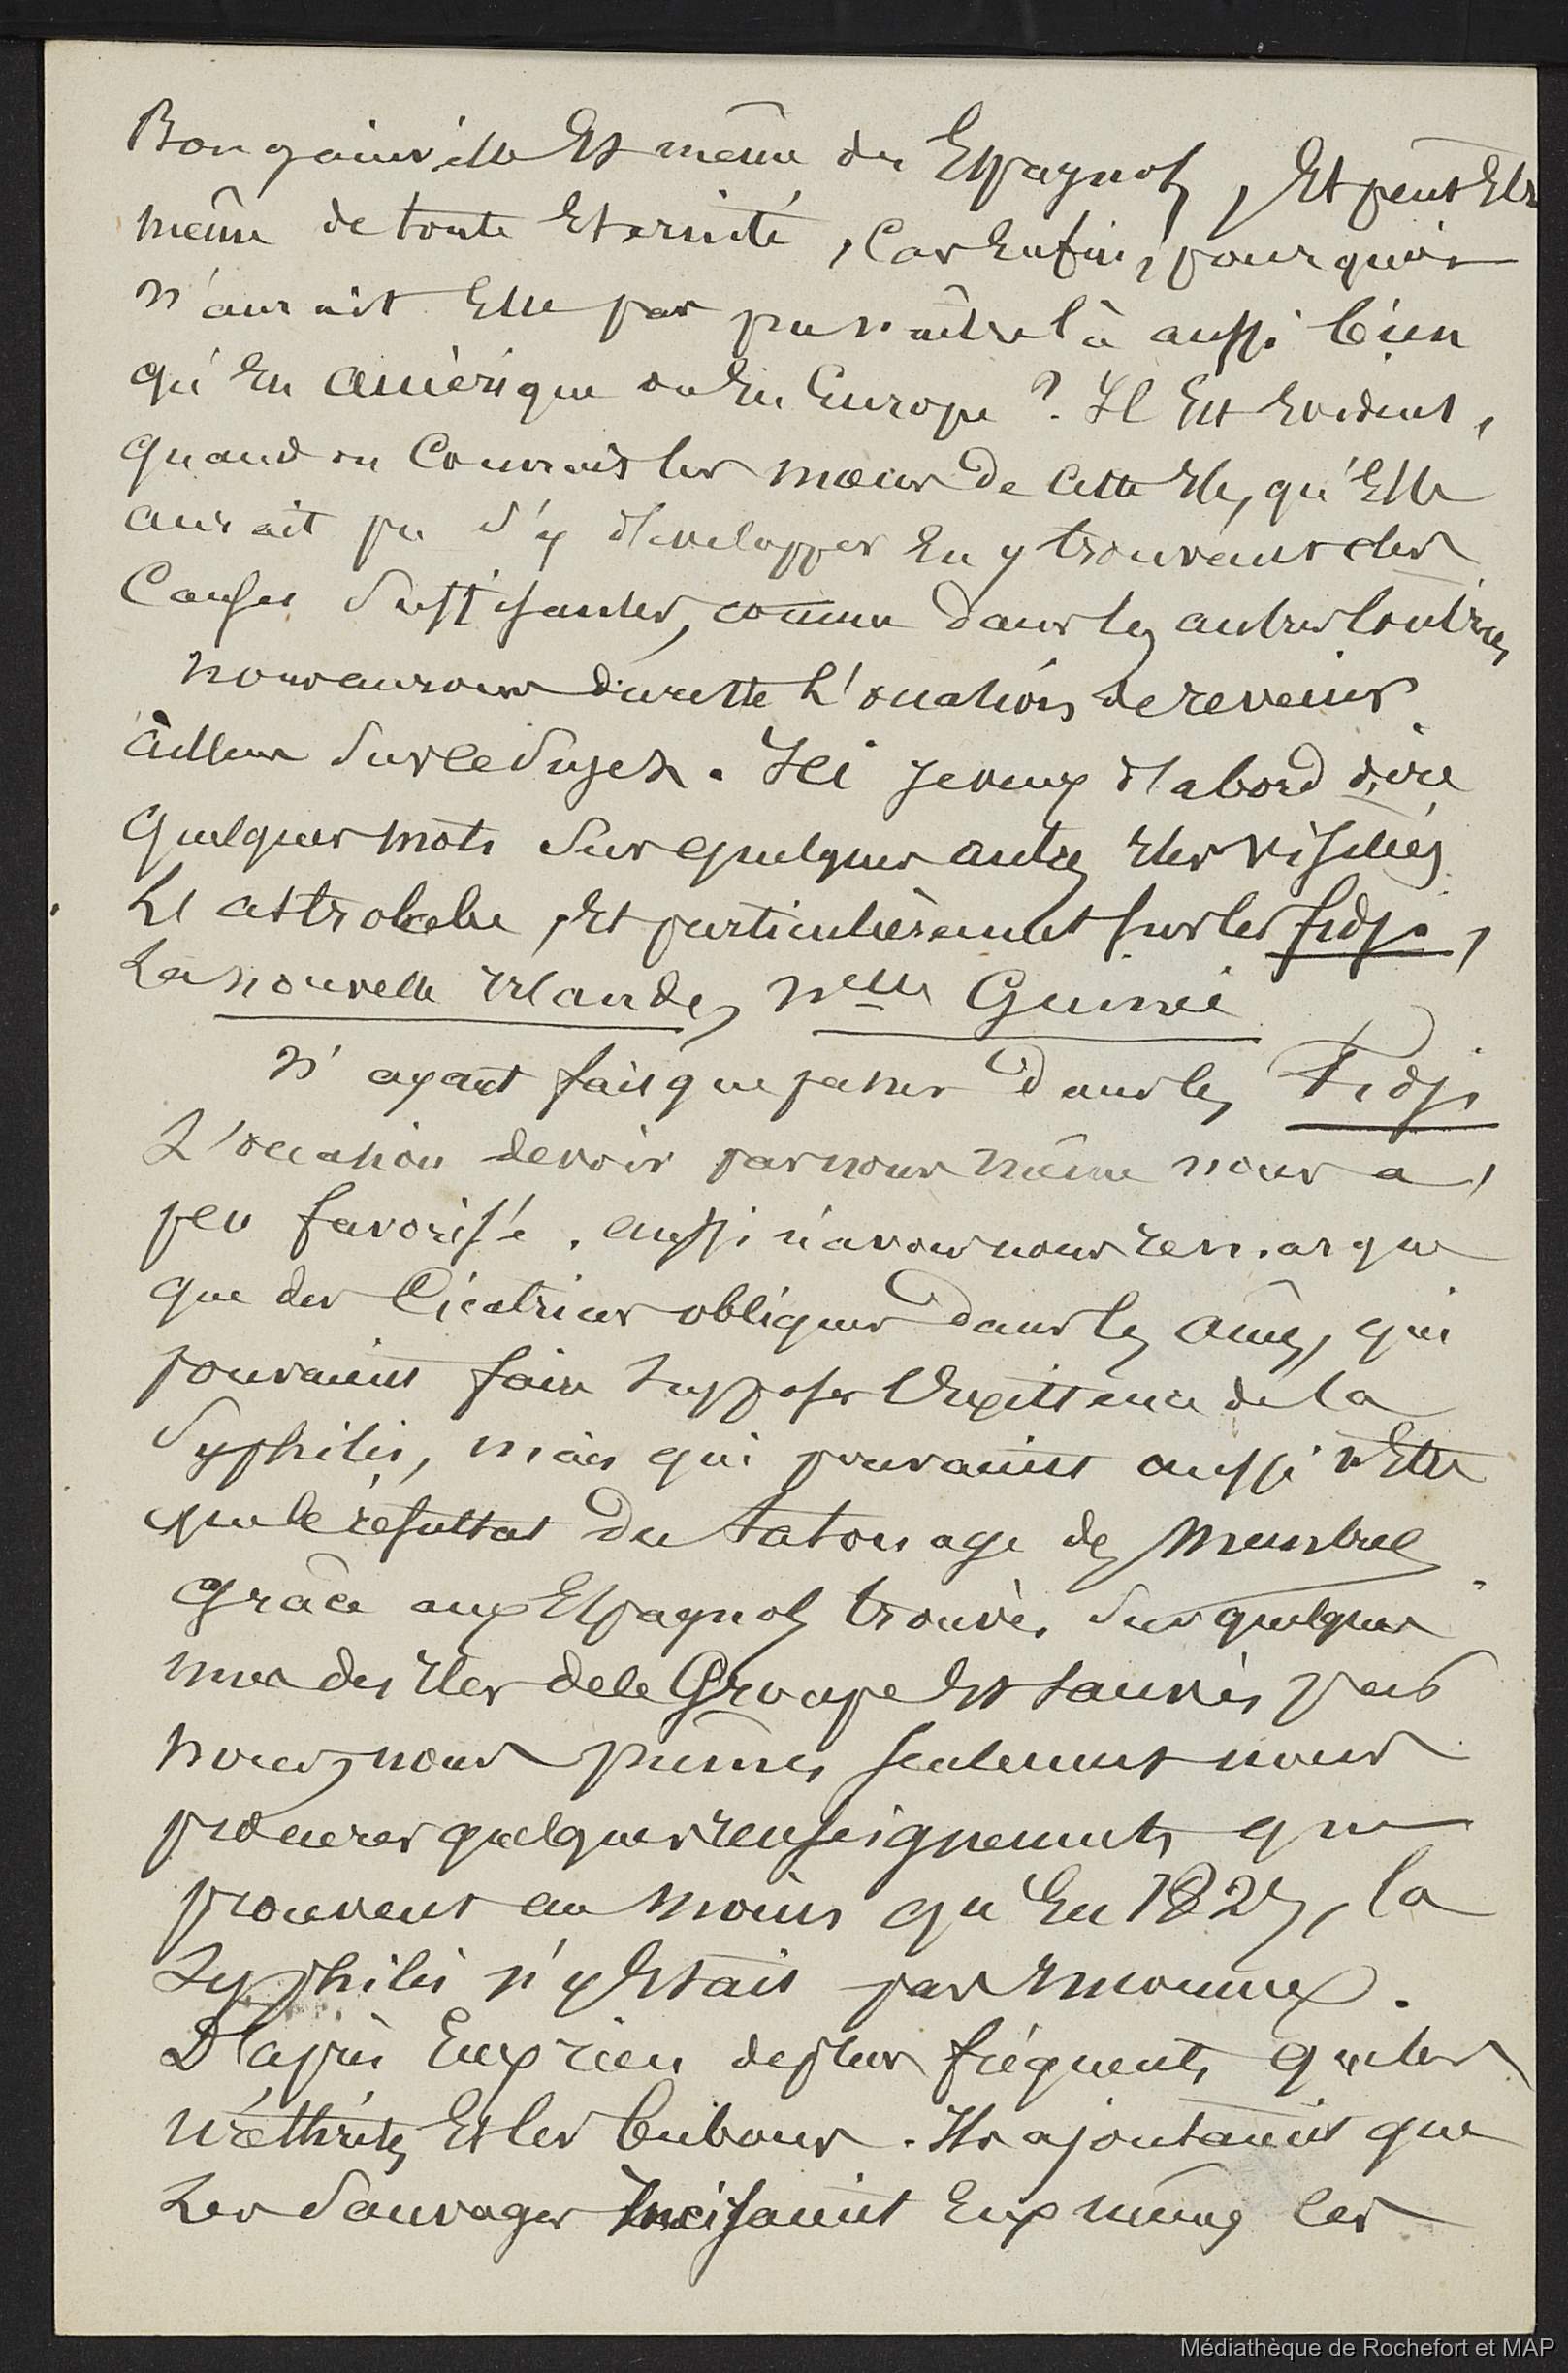 Bougainville Et même des Espagnols, Et peut Etre
même de toute Eternité, Car Enfin, pourquoi
n'aurait Elle pas pu naître là aussi bien
qu'En amérique ou En Europe ? Il Est Evident,
quand on Connait les mœurs de Cette Ile, qu'Elle
aurait pu s'y développer En y trouvant des
Causes suffisantes, comme dans les autres Contrées,
nous aurons du reste l'occasion de revenir
ailleurs sur ce sujet. Ici je veux d'abord dire
quelques mots sur quelques autres Iles visitées
L'astrolabe, Et particulièrement sur les fidji,
La nouvelle Irlande, Nelle Guinée
N'ayant fait que passer dans les Fidji
L'occasion de voir par nous même nous a,
peu favorisé. aussi n'avons nous remarqué
que des Cicatrices obliques dans les aînes, qui
pouvaient faire supposer l'Existence de la
Syphilis, mais qui pouvaient aussi n'Etre
que le résultat du tatouage des Membres
Grâce aux Espagnols trouvés sur quelques
unes des Iles de le Groupe Et sauvés par
nous, nous pûmes seulement nous
procurer quelques renseignements qui
prouvent au moins qu'En 1827, la
Syphilis n'y Etait pas Inconnue.
D'après Eux rien de plus fréquent, que les
uréthrites Et les bubons. Ils ajoutaient que
Les Sauvages Incisaient Eux mêmes les
Médiathèque de Rochefort et MAP